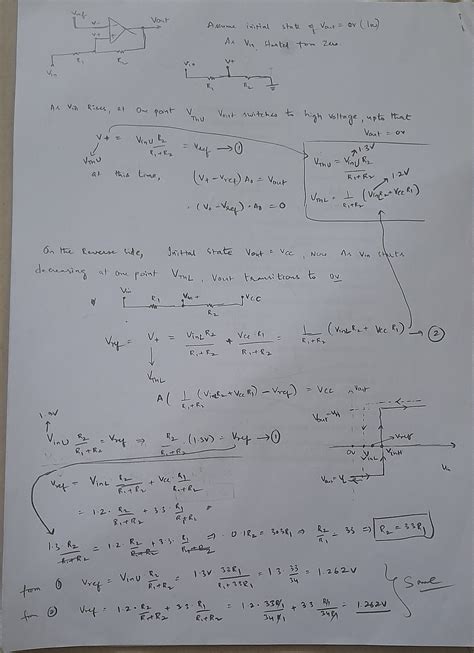 Vref
Vout
V+
R1
R2
Vin
Assume initial state of Vout = 0V (low)
As Vin started from zero
Vin
V+
R1
R2
As Vin Rises, at one point VThU Vout switches to high voltage, upto that
Vout = 0V
V+ = VinU R2 / R1+R2 = Vref → ①
VthU
VthU = VinU R2 / R1+R2
1.3V
1.2V
VthL = 1 / R1+R2 (VinL R2 + VCC R1)
at this time, (V+ - Vref) A0 = Vout
(V+ - Vref) · A0 = 0
On the Reverse side, Initial state Vout = VCC, Now As Vin starts
decreasing at one point VThL, Vout transitions to 0V
Vin
R1
R2
VCC
Vref = V+ = VinL R2 / R1+R2 + VCC R1 / R1+R2 = 1 / R1+R2 (VinL R2 + VCC R1) → ②
VinL
A ( 1 / R1+R2 (VinL R2 + VCC R1) - Vref) = VCC = Vout
VinU R2 / R1+R2 = Vref ⇒ R2 / R1+R2 (1.3V) = Vref → ①
Vref = VinL R2 / R1+R2 + VCC R1 / R1+R2
Vref
0V
VinL
VinH
Vin
= 1.2 · R2 / R1+R2 + 3.3 · R1 / R1+R2
1.3 · R2 / R1+R2 = 1.2 · R2 / R1+R2 + 3.3 · R1 / R1+R2 ⇒ 0.1R2 = 3.3R1 ⇒ R2 / R1 = 33 ⇒ R2 = 33R1
from ① Vref = VinU R2 / R1+R2 = 1.3V 33R1 / R1+33R1 = 1.3 · 33 / 34 = 1.262V
from ② Vref = 1.2 · R2 / R1+R2 + 3.3 · R1 / R1+R2 = 1.2 · 33R1 / 34R1 + 3.3 R1 / 34R1 = 1.262V
Same